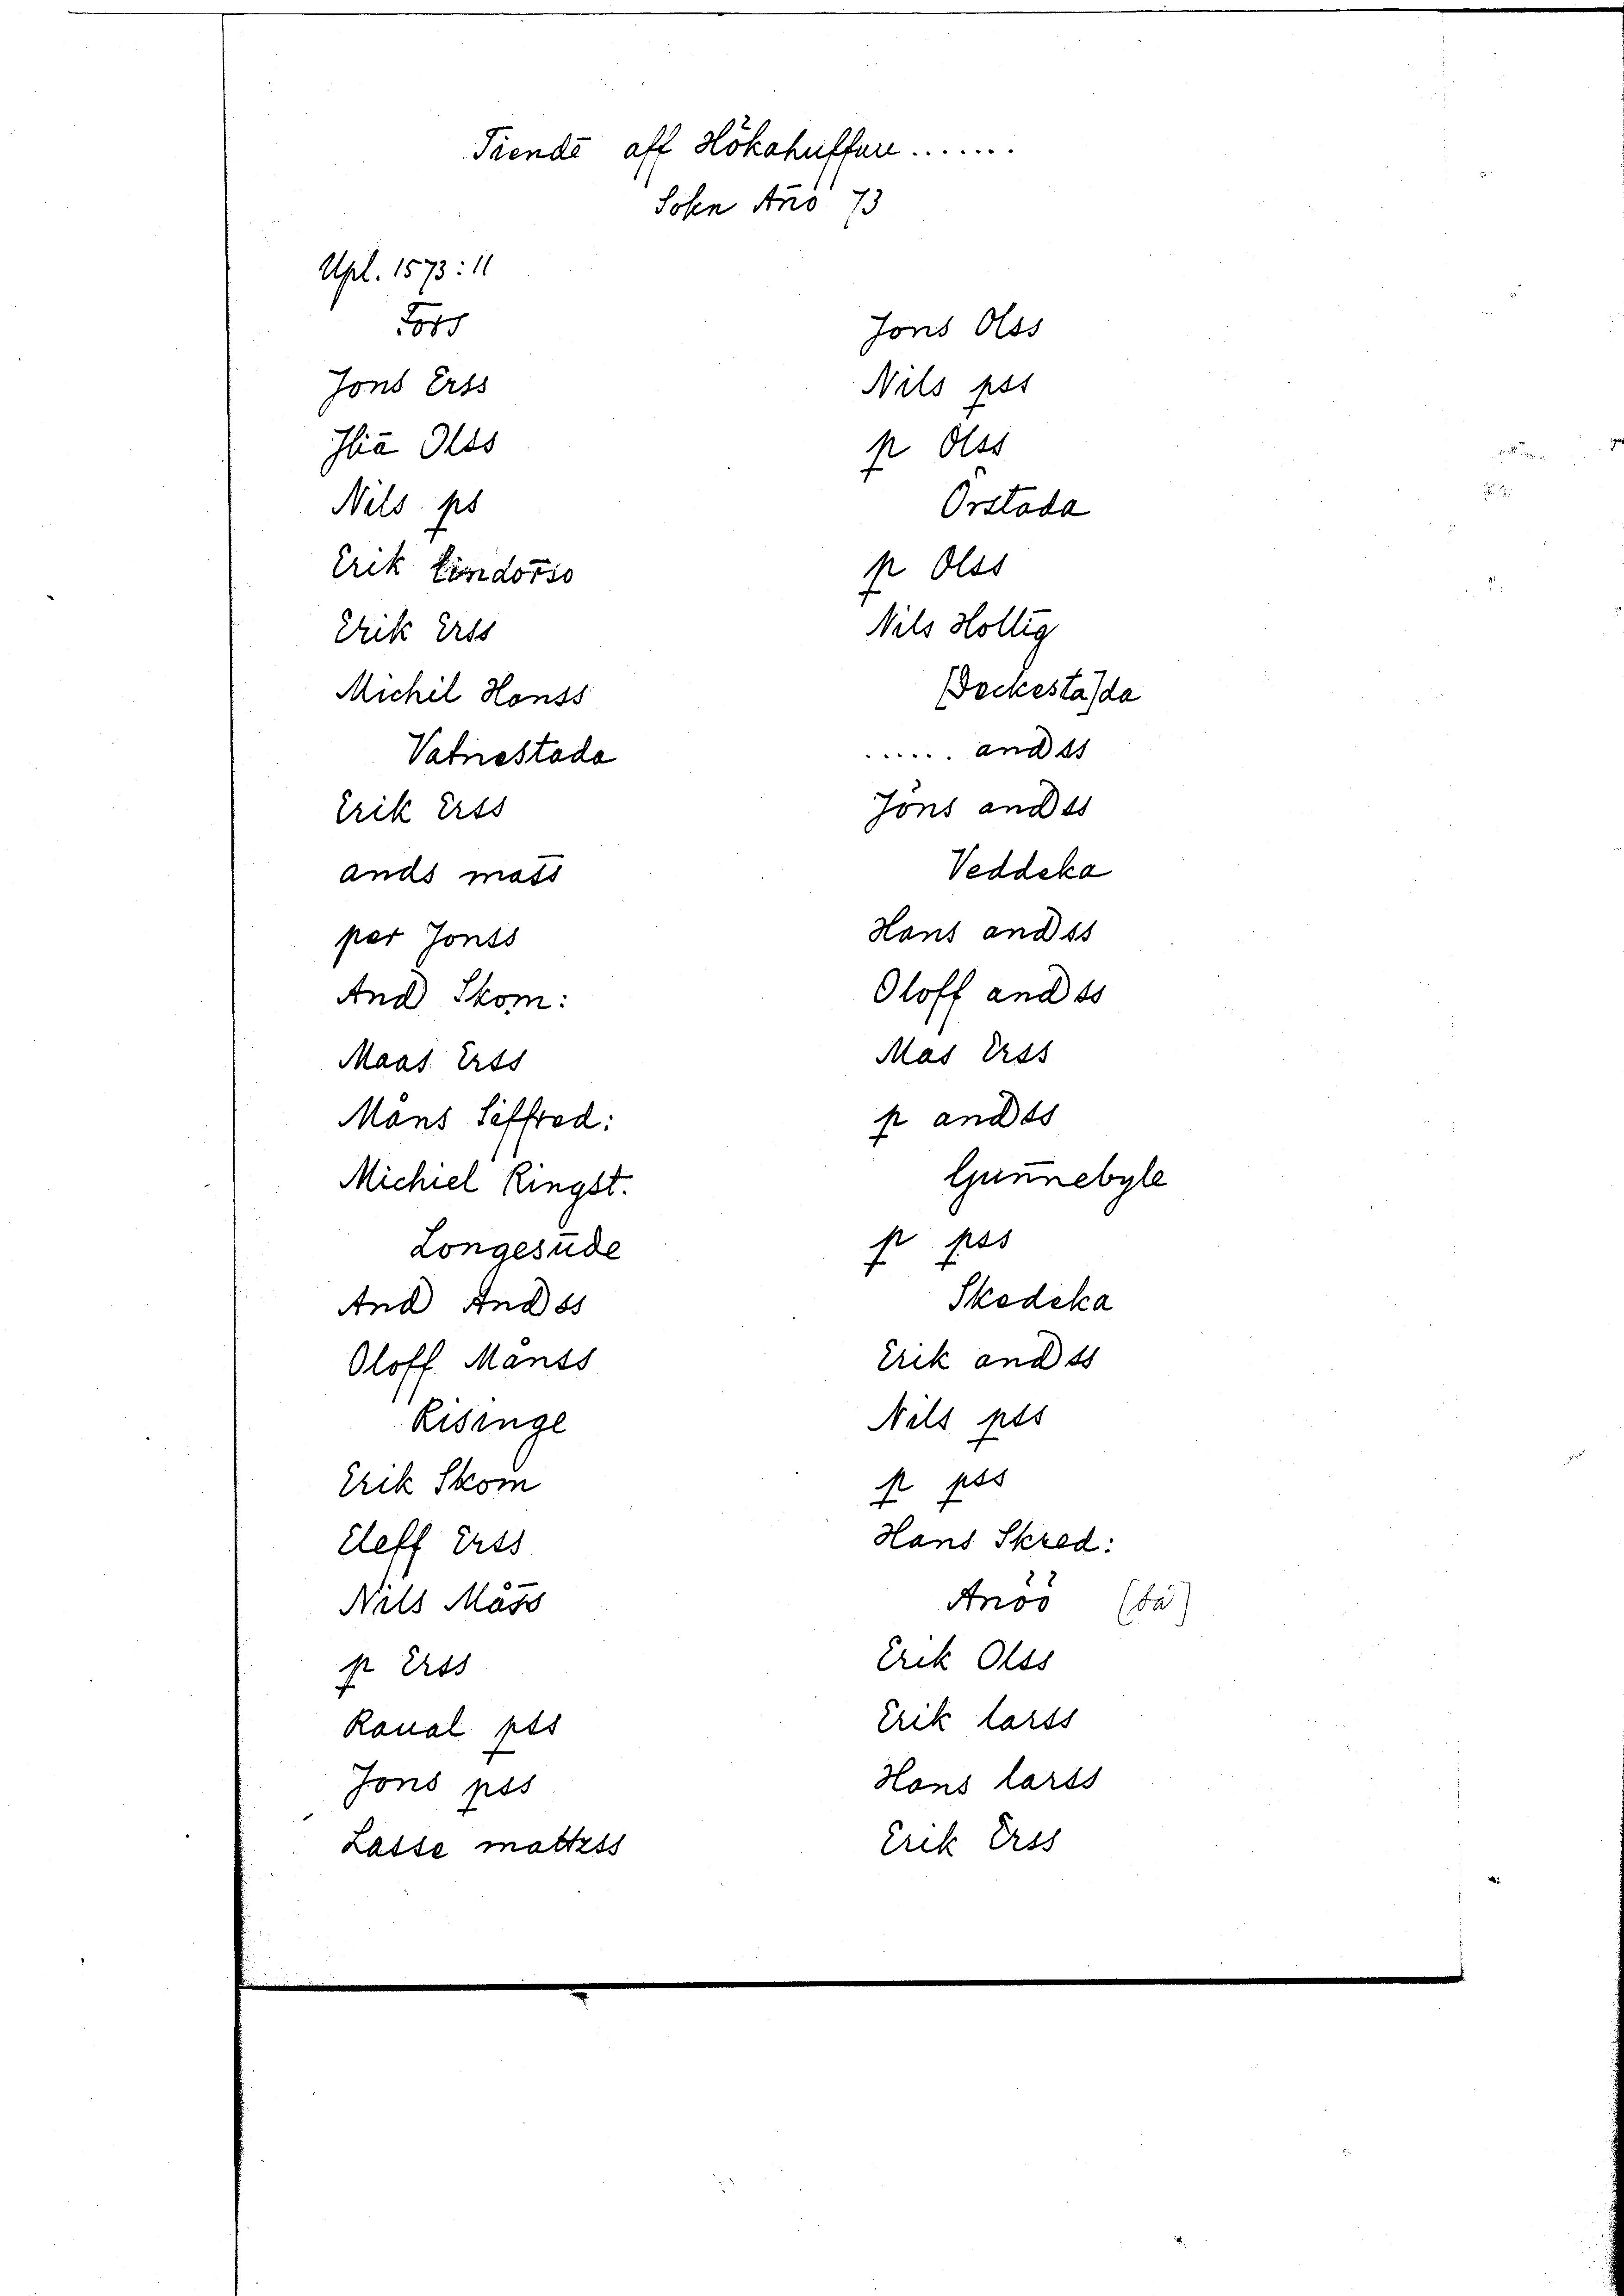 Tiendē aff Hökahuffuu.......
Sokn Año 73
Upl. 1573:11
Fors
Jons Erss
Jliā Olss
Nils ps
Erik
Erik Erss
Michil Hanss
Vatnestada
Erik Erss
ands mass
per Jonss
And Skom:
Maas Erss
Måns Siffred:
Michiel Ringst.
Longesūde
And Andss
Oloff Månss
Risinge
Erik Skom̄
Eleff Erss
Nils Måss
p Erss
Raual pss
Jons pss
Lasse mattzss
Jons Olss
Nils pss
p Olss
Örstada
p Olss
Nils Hollig
[Deckesta]da
..... andss
Jöns andss
Veddeka
Hans andss
Oloff andss
Mas Erss
p andss
Gun̄nebyle
p pss
Skedeka
Erik andss
Nils pss
p pss
Hans Skred:
Anöö (ta)
Erik Olss
Erik larss
Hans larss
Erik Erss